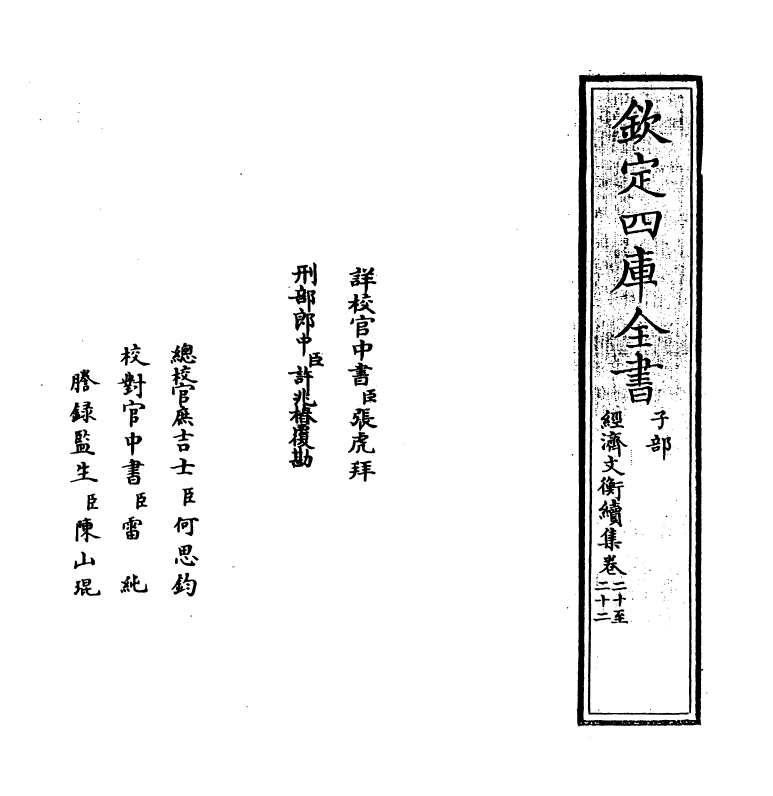 欽定四庫全書
子部
經濟文衡續集卷二十至二十二
詳校官中書臣張虎拜
刑部郎中臣許兆椿覆勘
總校官庶吉士臣何思鈞
校對官中書臣雷純
謄錄監生臣陳山琨